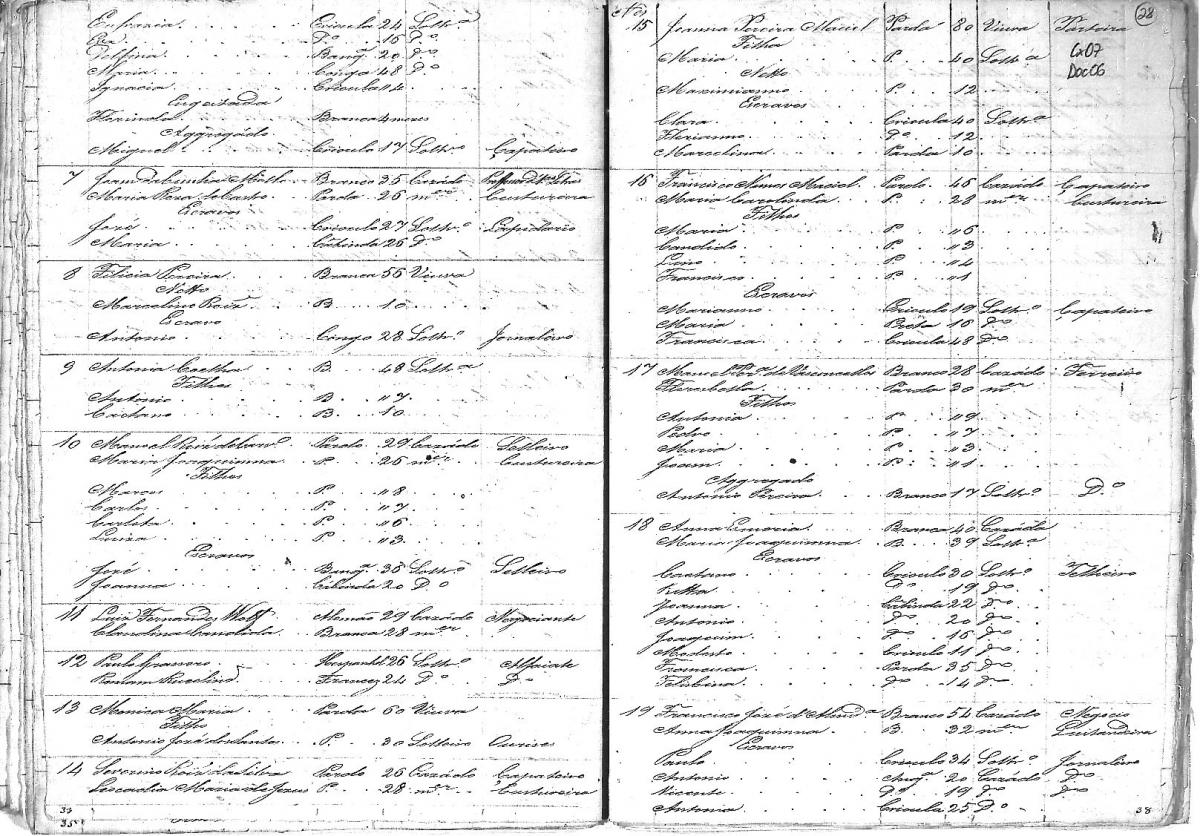 Eufrazia Crioula 24 Solth.ª
Eva D.º 16 D.º
Delfina Bang.ª 20 D.º
Maria Conga 48 D.º
Ignacia Crioula 14
Engeitada
Florinda Branca 4 mezes
Aggregado
Miguel Crioulo 17 Solth.º Çapateiro
7 Joam da Cunha Branco 35 Cazádo
Maria Roza de Castro Parda 26 m.er Costureira
Escravos
José Crioulo 27 Solth.º Lapidario
Maria Cabinda 26 D.º
8 Felicia Pereira Branca 56 Viuva
Netto
Marcelino Roiz B. 10
Escravo
Antonio Congo 28 Solth.º Jornaleiro
9 Antonia Coelha B. 48 Solth.ª
Filhos
Antonio B. "7
Caetano B. 10
10 Manoel Roiz de Pardo 29 Cazádo Selleiro
Maria Joaquinna P. 26 m.er Costureira
Filhos
Marcos P. "8
Carlos P. "7
Carlota P. "6
Luiza P. "3
Escravos
José Bang.ª 36 Solth.º Selleiro
Joanna Cabinda 20 D.º
11 Luiz Fernandes Alemão 29 Cazádo Negociante
Claudina Candida Branca 28 m.er
12 Paulo Hespanhol 26 Solth.º Alfaiate
Francez 24 D.º D.º
13 Monica Maria Parda 60 Viuva
Filho
Antonio José dos Santos P. 30 Solteiro Ourives
14 Severino Roiz da Silva Pardo 26 Cazádo Çapateiro
Leocadia Maria de Jezus P. 28 m.er Costureira
35
35v
28
Cx07
Doc06
15 Joanna Pereira Maciel Parda 80 Viuva Parteira
Filha
Maria P. 40 Solth.ª
Netto
Maximianno P. 12
Escravos
Clara Crioula 40 Solth.ª
Florianno D.º 12
Marcelina Parda 10
16 Francisco Nunes Maciel Pardo 46 Cazádo Çapateiro
Maria Carolinda P. 28 m.er Costureira
Filhos
Maria P. "6
Candido P. "3
Lino P. "4
Francisco P. "1
Escravos
Marianno Crioulo 19 Solth.º Çapateiro
Maria Preta 16 D.º
Francisca Crioula 48 D.º
17 Manoel de Vasconcellos Branco 28 Cazádo Ferreiro
Florisbella Parda 30 m.er
Filhos
Antonia P. "9
Pedro P. "7
Maria P. "3
Joam P. "1
Aggregado
Antonio Pereira Branco 17 Solth.º D.º
18 Anna Branca 40 Cazáda
Maria Joaquinna B. 39 Solth.ª
Escravos
Caetano Crioulo 30 Solth.º Telheiro
Ritta D.º 19 D.º
Joanna Cabinda 22 D.º
Antonio D.º 20 D.º
Joaquim D.º 16 D.º
Modesto Crioulo 11 D.º
Francisca Parda 35 D.º
Felisbina D.º 14 D.º
19 Francisco José d'Almd.ª Branco 54 Cazádo Negocio
Anna Joaquinna B. 32 m.er Quitandeira
Escravos
Paulo Crioulo 34 Solth.º Jornaleiro
Antonio Ang.ª 20 Cazádo D.º
Vicente D.º 19 D.º D.º
Antonia Crioula 25 D.º
38